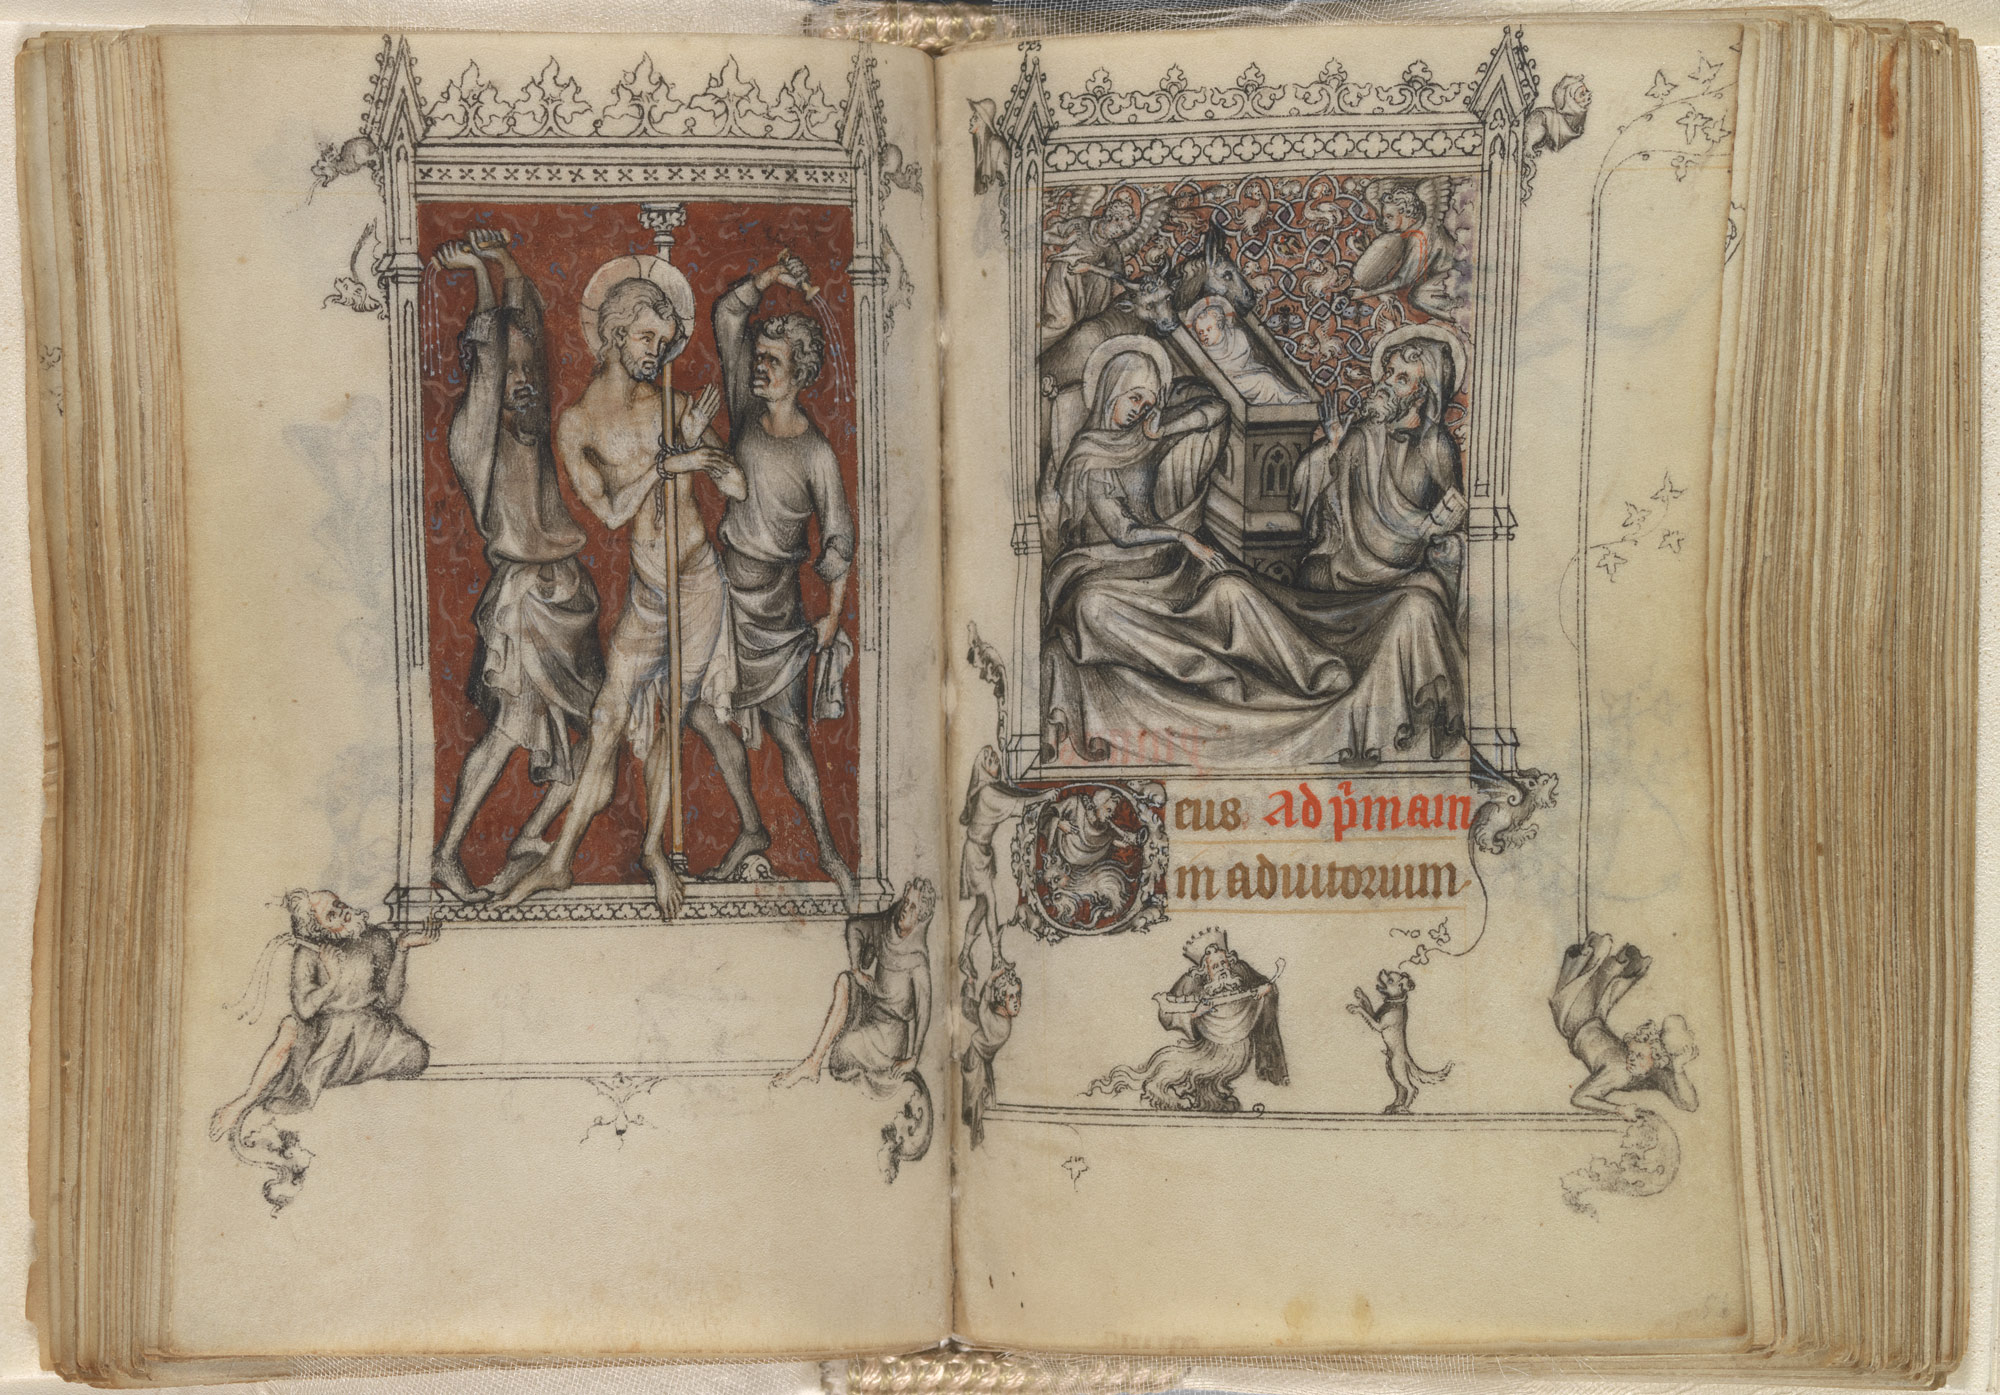 Deus Ad pͥmam
in adiutorium